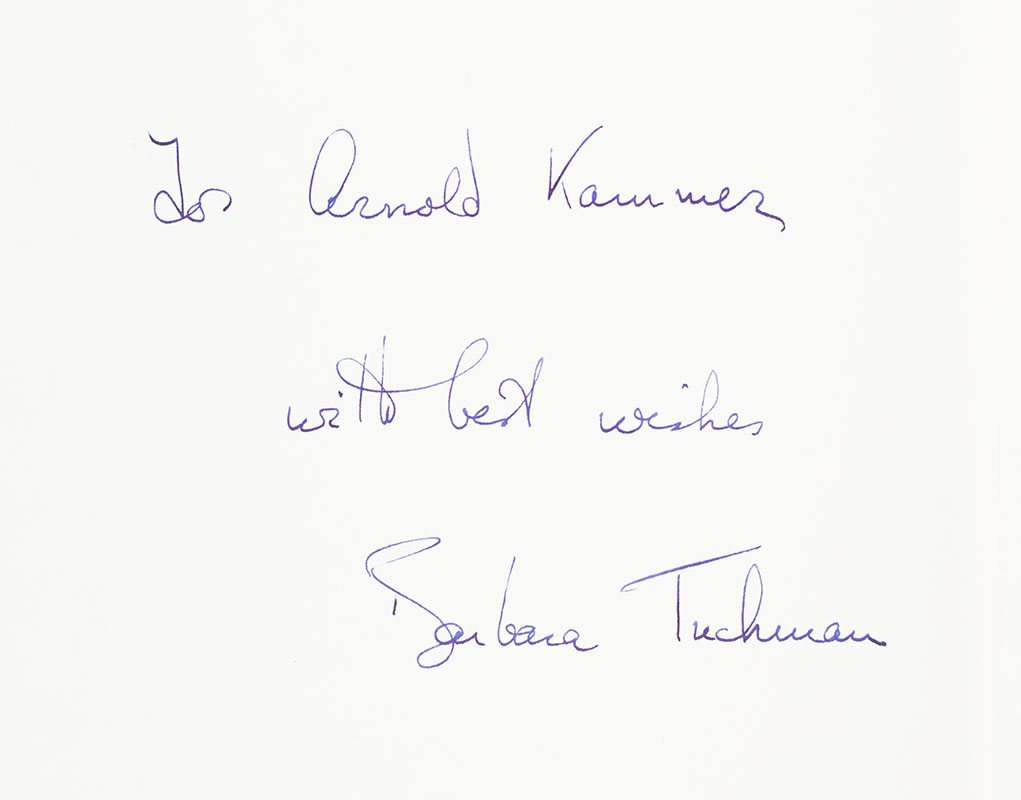 For Arnold Kammer
with best wishes
Barbara Tuchman